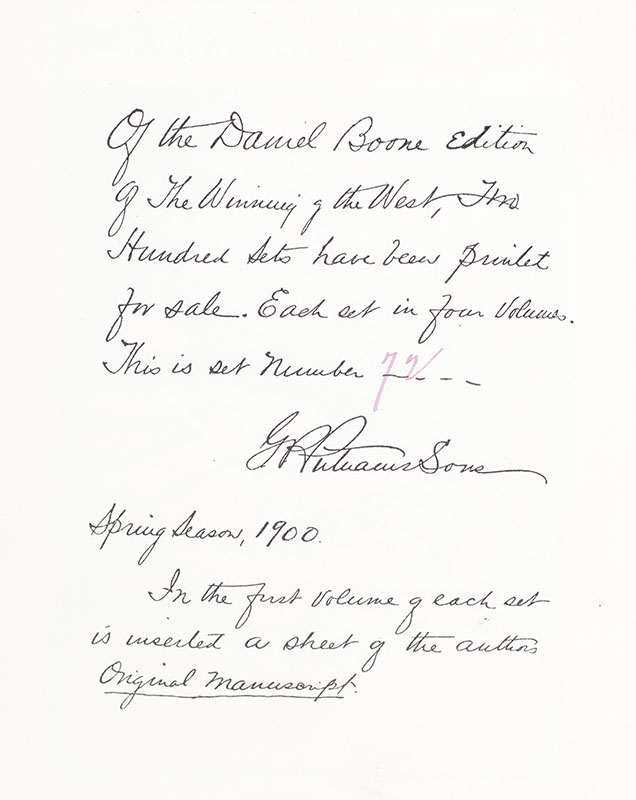 Of the Daniel Boone Edition
of The Winning of the West, Two
Hundred sets have been printed
for sale. Each set in four Volumes.
This is set Number 72
G P Putnams Sons
Spring Season, 1900.
In the first Volume of each set
is inserted a sheet of the authors
Original Manuscript.